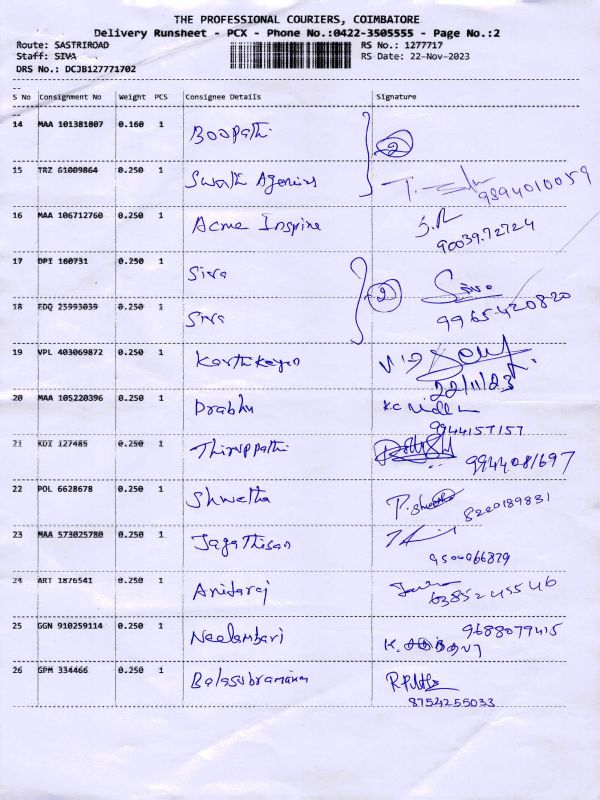 THE PROFESSIONAL COURIERS, COIMBATORE
Delivery Runsheet - PCX - Phone No.:0422-3505555 - Page No.:2
Route: SASTRIROAD RS No.: 1277717
Staff: SIVA RS Date: 22-Nov-2023
DRS No.: DCJB127771702
S No Consignment No Weight PCS Consignee Details Signature
14 MAA 101381807 0.160 1 Boopathi 2
15 TRZ 61009864 0.250 1 Swathi Agencies
9894010059
16 MAA 106712760 0.250 1 Acme Inspire
90039.72724
17 DPI 160731 0.250 1 Siva 2 Siva
18 EDQ 25993039 0.250 1 Siva 9965420820
19 VPL 403069872 0.250 1 Karthikeyan
22/11/23
20 MAA 105220396 0.250 1 Prabhu K.C
9944157157
21 KDI 127485 0.250 1 Thiruppathi 9944081697
22 POL 6628678 0.250 1 Shwetha P.shwetha
8220189831
23 MAA 573025780 0.250 1 Jagathisan
9500066829
24 ART 1876541 0.250 1 Anitaraj
6385245546
25 GGN 910259114 0.250 1 Neelambari 9688079415
26 GPM 334466 0.250 1 Balasubramaniam
8754255033